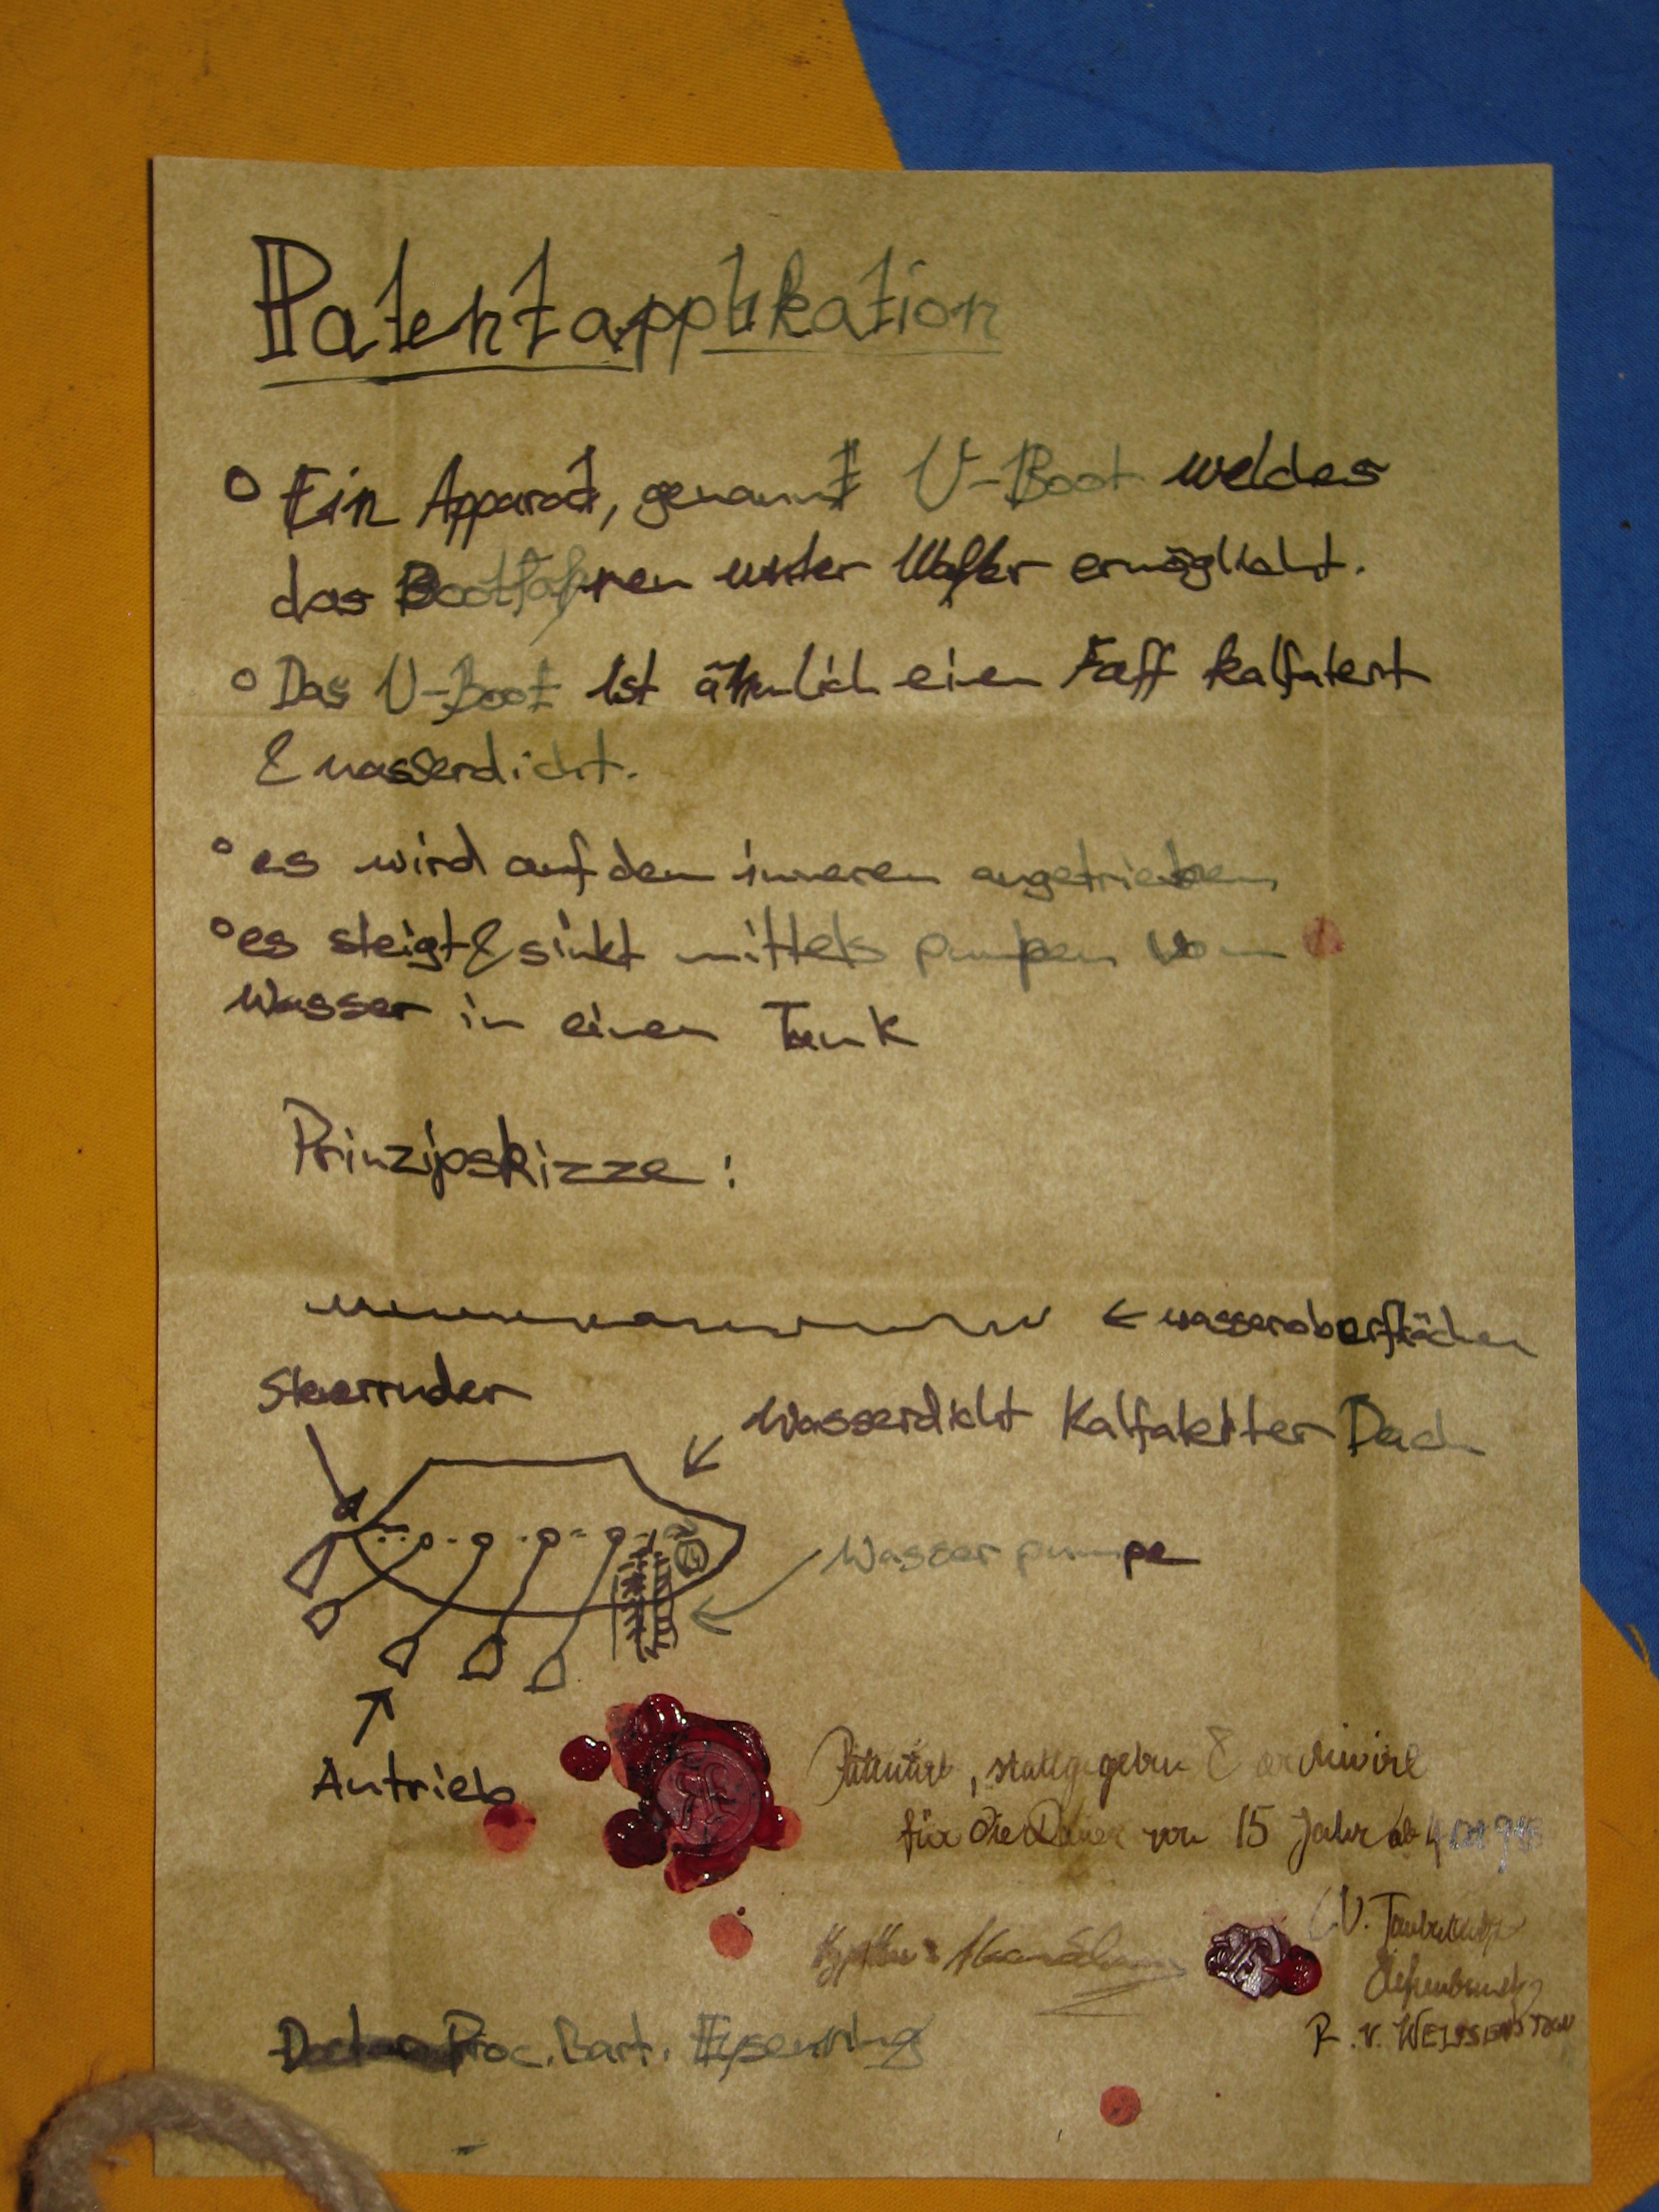 Patentapplikation
Ein Apparat, genannt U-Boot welches
das Bootfahren unter Wasser ermöglicht.
Das U-Boot ist ähnlich einen Faff kalfatert
& wasserdicht.
es wird auf dem inneren angetrieben
es steigt & sinkt mittels pumpen von
Wasser in einen Tank
Prinzipskizze:
← wasseroberflächen
Steerruder
Wasserdicht Kalfatekter Dach
Wasserpumpe
Antrieb
Patentiert, stattgegeben & archiviert
für die Dauer von 15 Jahr ab
Proc. Bart. Eysenring
R. v. WEISSENSTEIN